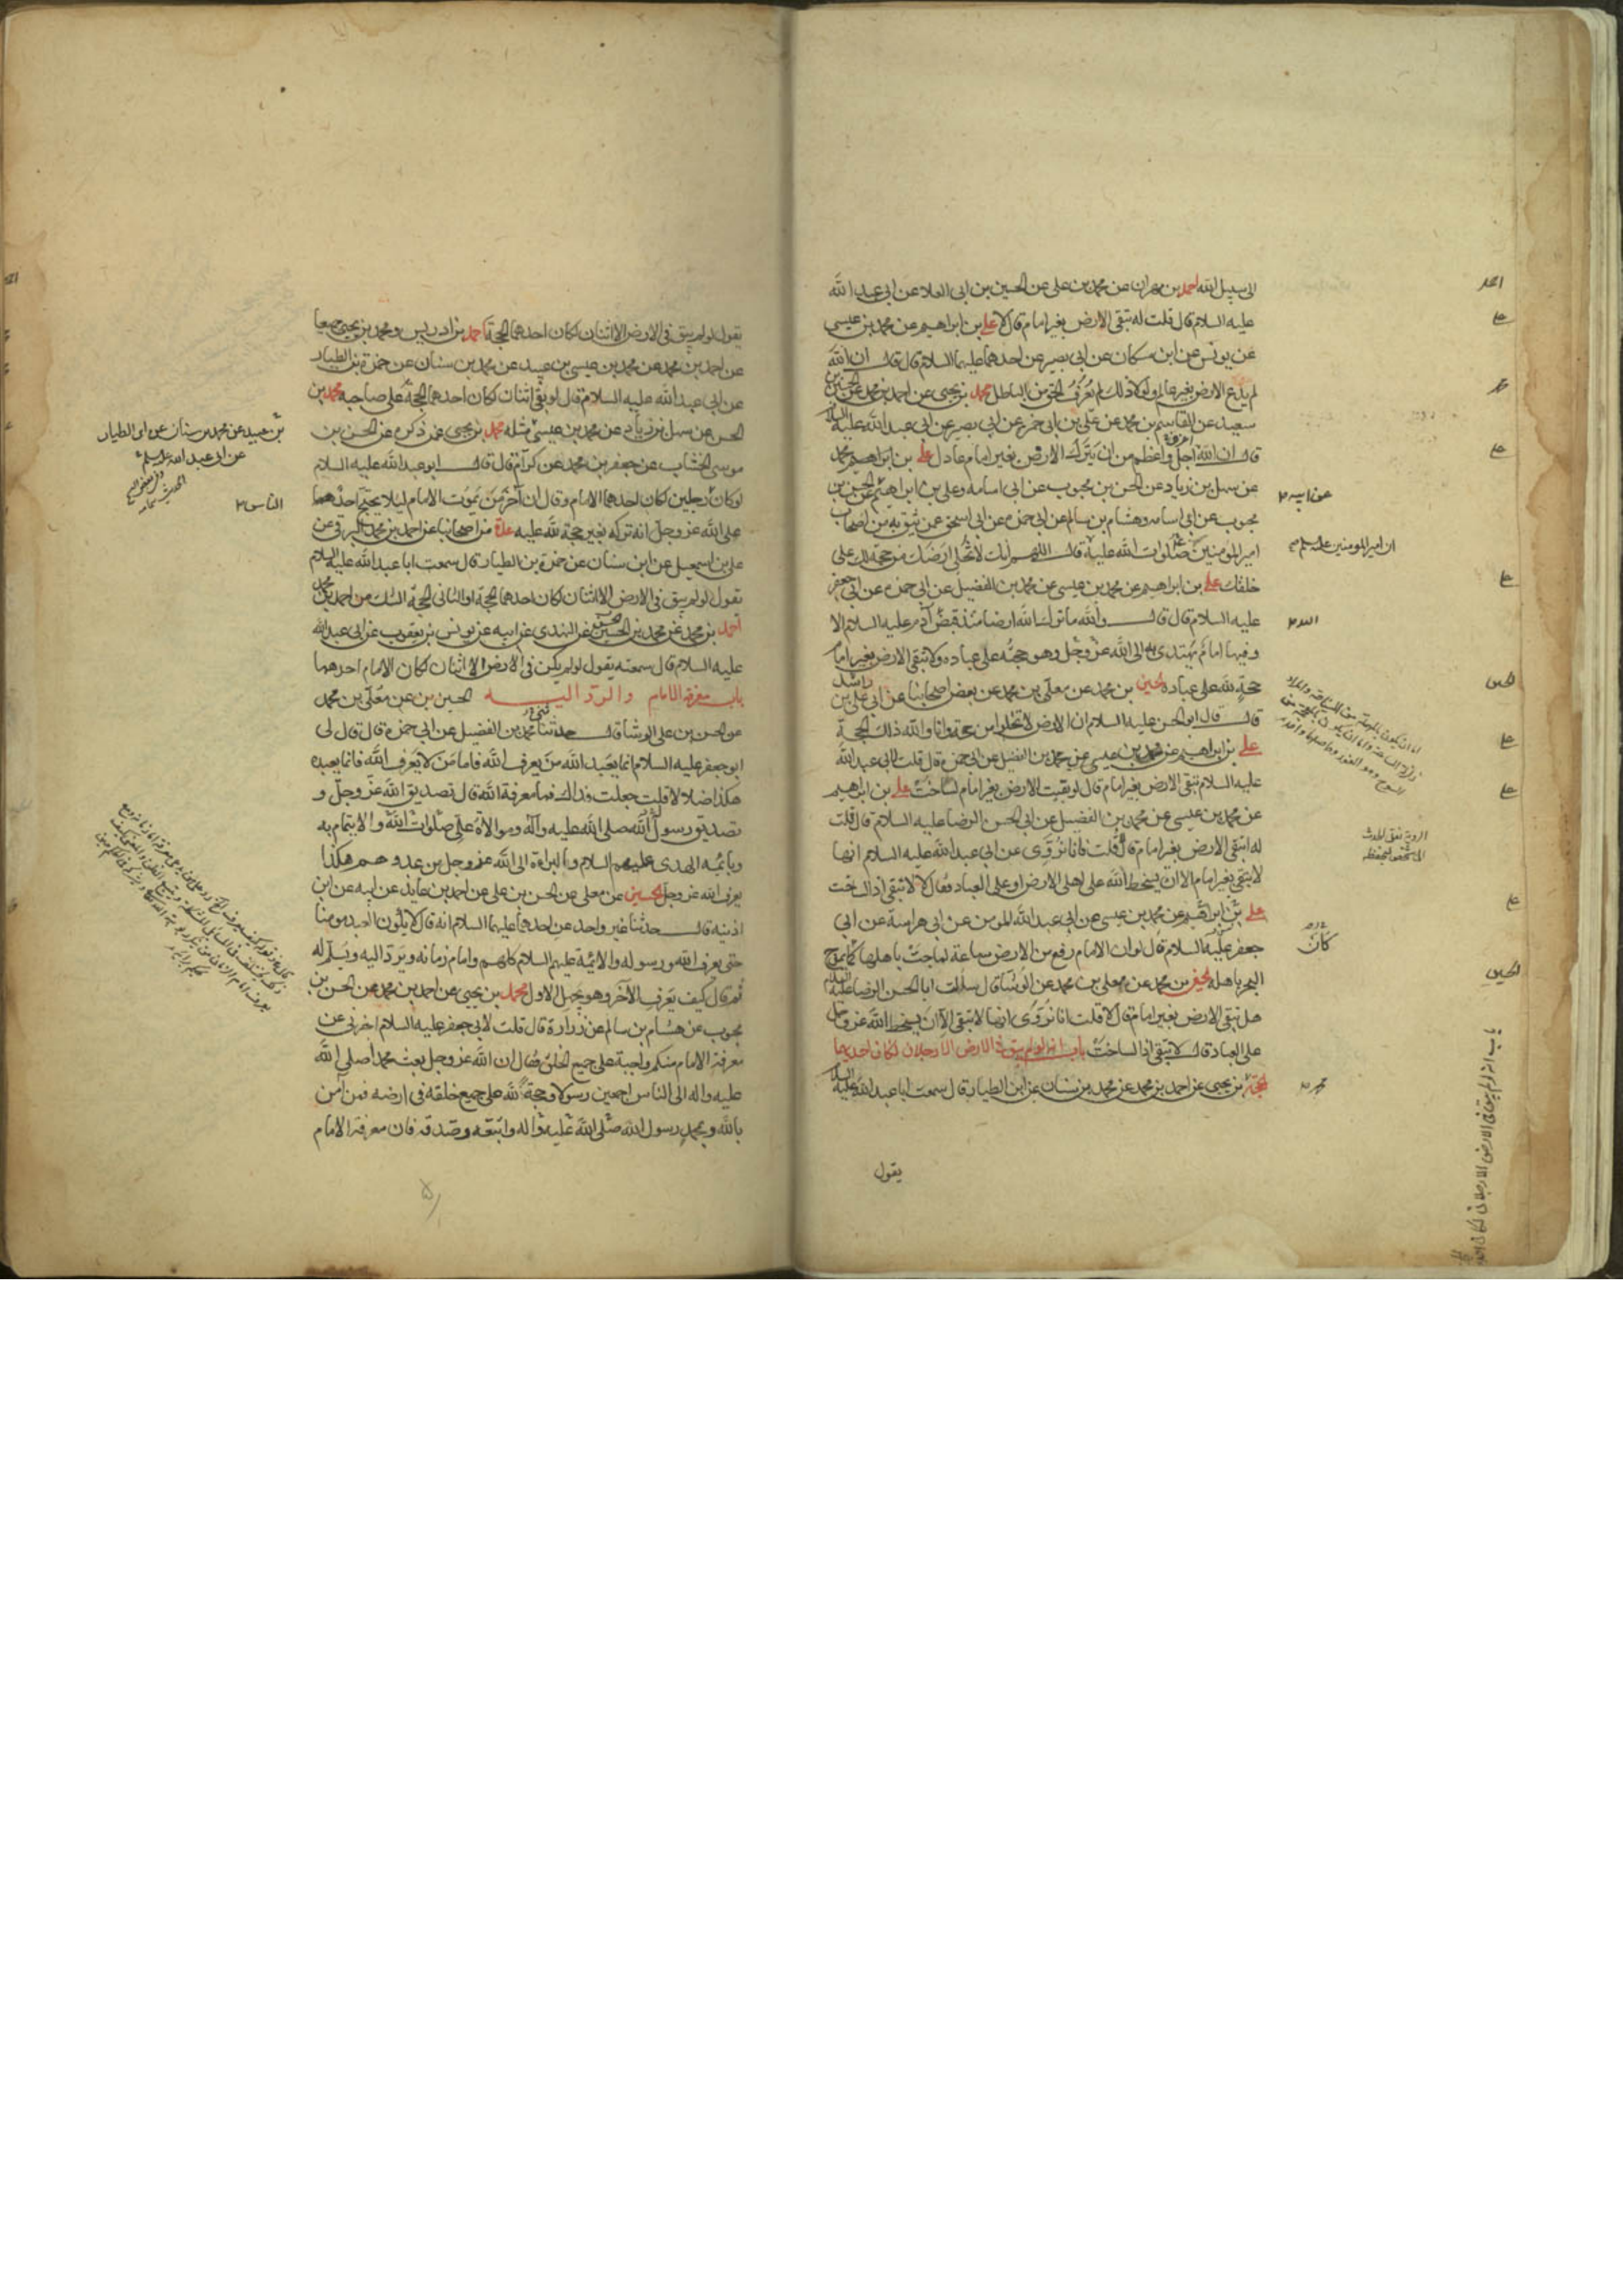 الى سبيل الله احمد بن مهران عن محمد بن علي عن الحسين بن ابي العلا عن ابي عبد الله
عليه السلام قال قلت له تبقى الارض بغير امام قال لا علي بن ابراهيم عن محمد بن عيسى
عن يونس عن ابن مسكان عن ابي بصير عن احدهما عليهما السلام قال قال ان الله
لم يدع الارض بغير عالم ولولا ذلك لم يعرف الحق من الباطل محمد بن يحيى عن احمد بن محمد عن الحسين بن
سعيد عن القاسم بن محمد عن علي بن ابي حمزه عن ابي بصير عن ابي عبد الله عليه السلام
قال ان الله اجل واعظم من ان يترك الارض بغير امام عادل علي بن ابراهيم محمد
عن سهل بن زياد عن الحسن بن محبوب عن ابي اسامه وعلي بن ابراهيم عن الحسن بن
محبوب عن ابي اسامه وهشام بن سالم عن ابي حمزه عن ابي اسحق عمن يثق به من اصحاب
امير المؤمنين صلوات الله عليه قال اللهم انك لا تخلي ارضك من حجة لك على
خلقك علي بن ابراهيم عن محمد بن عيسى عن محمد بن الفضيل عن ابي حمزه عن ابي جعفر
عليه السلام قال قال والله ما ترك الله ارضا منذ قبض آدم عليه السلام الا
وفيها امام يهتدى به الى الله عز وجل وهو حجته على عباده ولا تبقى الارض بغير امام
حجة لله على عباده الحسين بن محمد عن معلى بن محمد عن بعض اصحابنا عن ابي علي بن راشد
قال قال ابو الحسن عليه السلام ان الارض لا تخلو من حجة وانا والله ذلك الحجة
علي بن ابراهيم عن محمد بن عيسى عن محمد بن الفضيل عن ابي حمزة قال قلت لابي عبد الله
عليه السلام تبقى الارض بغير امام قال لو بقيت الارض بغير امام لساخت علي بن ابراهيم
عن محمد بن عيسى عن محمد بن الفضيل عن ابي الحسن الرضا عليه السلام قال قلت
له اتبقى الارض بغير امام قال لا قلت فانا نروى عن ابي عبد الله عليه السلام انها
لا تبقى بغير امام الا ان يسخط الله على اهل الارض او على العباد فقال لا لا تبقى اذا لساخت
علي بن ابراهيم عن محمد بن عيسى عن ابي عبد الله المومن عن ابي هراسة عن ابي
جعفر عليه السلام قال لو ان الامام رفع من الارض ساعة لماجت باهلها كما يموج
البحر باهله الحسين بن محمد عن معلى بن محمد عن الوشا قال سالت ابا الحسن الرضا عليه السلام
هل تبقى الارض بغير امام قال لا قلت انا نروى انها لا تبقى الا ان يسخط الله عز وجل
على العباد قال لا تبقى اذا لساخت باب انه لو لم يبق في الارض الا رجلان لكان احديهما
الحجة بن يحيى عن احمد بن محمد عن محمد بن سنان عن ابن الطيار قال سمعت ابا عبد الله عليه السلام
يقول
احمد
علي
علي
علي
الحسين
علي
علي
علي
الحسين
عن ابيه
ان امير المؤمنين عليه السلم
الله
كان
باب انه لو لم يبق في الارض الا رجلان لكان احد
يقول لو لم يبق في الارض الا اثنان لكان احدهما الحجة احمد بن ادريس ومحمد بن يحيى جميعا
عن احمد بن محمد عن محمد بن عيسى بن عبيد عن محمد بن سنان عن حمزة بن الطيار
عن ابي عبد الله عليه السلام قال لو بقي اثنان لكان احدهما الحجة على صاحبه محمد بن
الحسن عن سهل بن زياد عن محمد بن عيسى مثله محمد بن يحيى عمن ذكره عن الحسن بن
موسى الخشاب عن جعفر بن محمد عن كرام قال قال ابو عبد الله عليه السلام
لو كان رجلين لكان احدهما الامام وقال ان آخر من يموت الامام ليلا يحتج احدهما
على الله عز وجل انه تركه بغير حجة لله عليه عدة من اصحابنا عن احمد بن محمد البرقي عن
علي بن اسمعيل عن ابن سنان عن حمزة بن الطيار قال سمعت ابا عبد الله عليه السلام
يقول لو لم يبق في الارض الا اثنان لكان احدهما الحجة او الثاني الحجة الشك من احمد بن محمد
احمد بن محمد عن محمد بن الحسن عن النهدي عن ابيه عن يونس بن يعقوب عن ابي عبد الله
عليه السلام قال سمعته يقول لو لم يكن في الارض الا اثنان لكان الامام احدهما
باب معرفة الامام والرد اليه الحسين بن عن معلى بن محمد
عن الحسن بن علي الوشا قال حدثنا محمد بن الفضيل عن ابي حمزه قال قال لي
ابو جعفر عليه السلام انما يعبد الله من يعرف الله فاما من لا يعرف الله فانما يعبده
هكذا ضلالا قلت جعلت فداك فما معرفة الله قال تصديق الله عز وجل و
تصديق رسول الله صلى الله عليه وآله وموالاة علي صلوات الله والايتمام به
وبائمة الهدى عليهم السلام والبراءة الى الله عز وجل من عدوهم هكذا
يعرف الله عز وجل الحسين عن معلى عن الحسن بن علي عن احمد بن عايذ عن ابيه عن ابن
اذينه قال حدثنا غير واحد عن احدهما عليهما السلام انه قال لا يكون العبد مومنا
حتى يعرف الله ورسوله والائمة عليهم السلام كلهم وامام زمانه ويرد اليه ويسلم له
ثم قال كيف يعرف الآخر وهو يجهل الاول محمد بن يحيى عن احمد بن محمد عن الحسن بن
محبوب عن هشام بن سالم عن زرارة قال قلت لابي جعفر عليه السلام اخبرني عن
معرفة الامام منكم واجبة على جميع الخلق فقال ان الله عز وجل بعث محمدا صلى الله
عليه واله الى الناس اجمعين رسولا وحجة لله على جميع خلقه في ارضه فمن آمن
بالله وبمحمد رسول الله صلى الله عليه واله واتبعه وصدقه فان معرفة الامام
بن عبيد عن محمد بن سنان عن ابن الطيار
عن ابي عبد الله عليه السلم
الناس